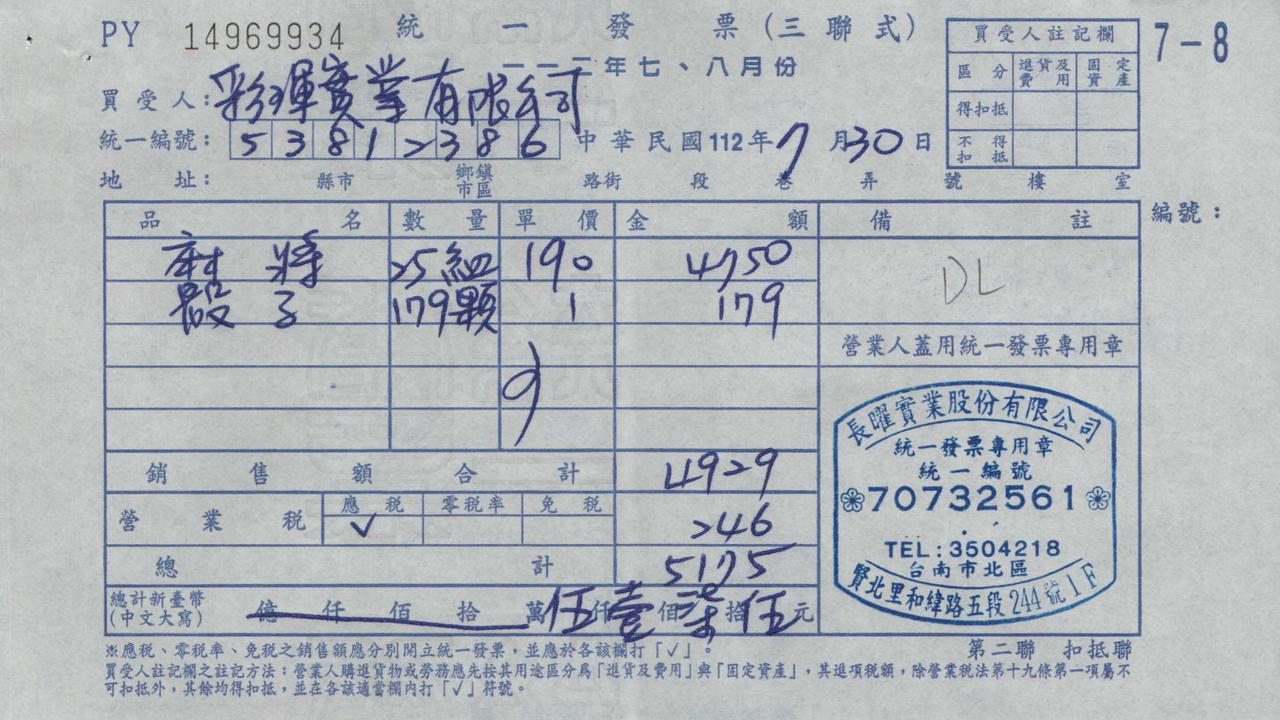 PY 14969934 統一發票(三聯式) 7-8
一一二年七、八月份
買受人:彩琿實業有限公司
統一編號:53812386 中華民國112年7月30日
地址: 縣市 鄉鎮市區 路街 段 巷 弄 號 樓 室
買受人註記欄
區分 進貨及費用 固定資產
得扣抵
不得扣抵
編號:
品名 數量 單價 金額 備註
麻將 25組 190 4750 DL
骰子 179顆 1 179
營業人蓋用統一發票專用章
銷售額合計 4929
營業稅 應稅 零稅率 免稅
✓ 246
總計 5175
總計新臺幣(中文大寫) 億仟佰拾萬伍仟壹佰柒拾伍元
長曜實業股份有限公司
統一發票專用章
統一編號
70732561
TEL:3504218
台南市北區
賢北里和緯路五段244號1F
※應稅、零稅率、免稅之銷售額應分別開立統一發票,並應於各該欄打「√」。
第二聯 扣抵聯
買受人註記欄之註記方法:營業人購進貨物或勞務應先按其用途區分為「進貨及費用」與「固定資產」,其進項稅額,除營業稅法第十九條第一項屬不
可扣抵外,其餘均得扣抵,並在各該適當欄內打「√」符號。